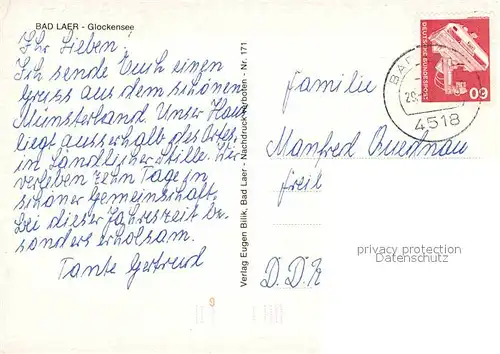 BAD LAER - Glockensee
Ihr Lieben!
Ich sende Euch einen
Gruss aus dem schönen
Münsterland. Unser Haus
liegt ausserhalb des Ortes,
in ländlicher Stille. Wir
verleben zehn Tage in
schöner Gemeinschaft.
Bei dieser Jahreszeit be-
sonders erholsam.
Tante Gertrud
Verlag Eugen Bilik, Bad Laer - Nachdruck verboten - Nr. 171
DEUTSCHE BUNDESPOST
60
BAD
4518
Familie
Manfred Quednau
D.D.R
privacy protection
Datenschutz
9